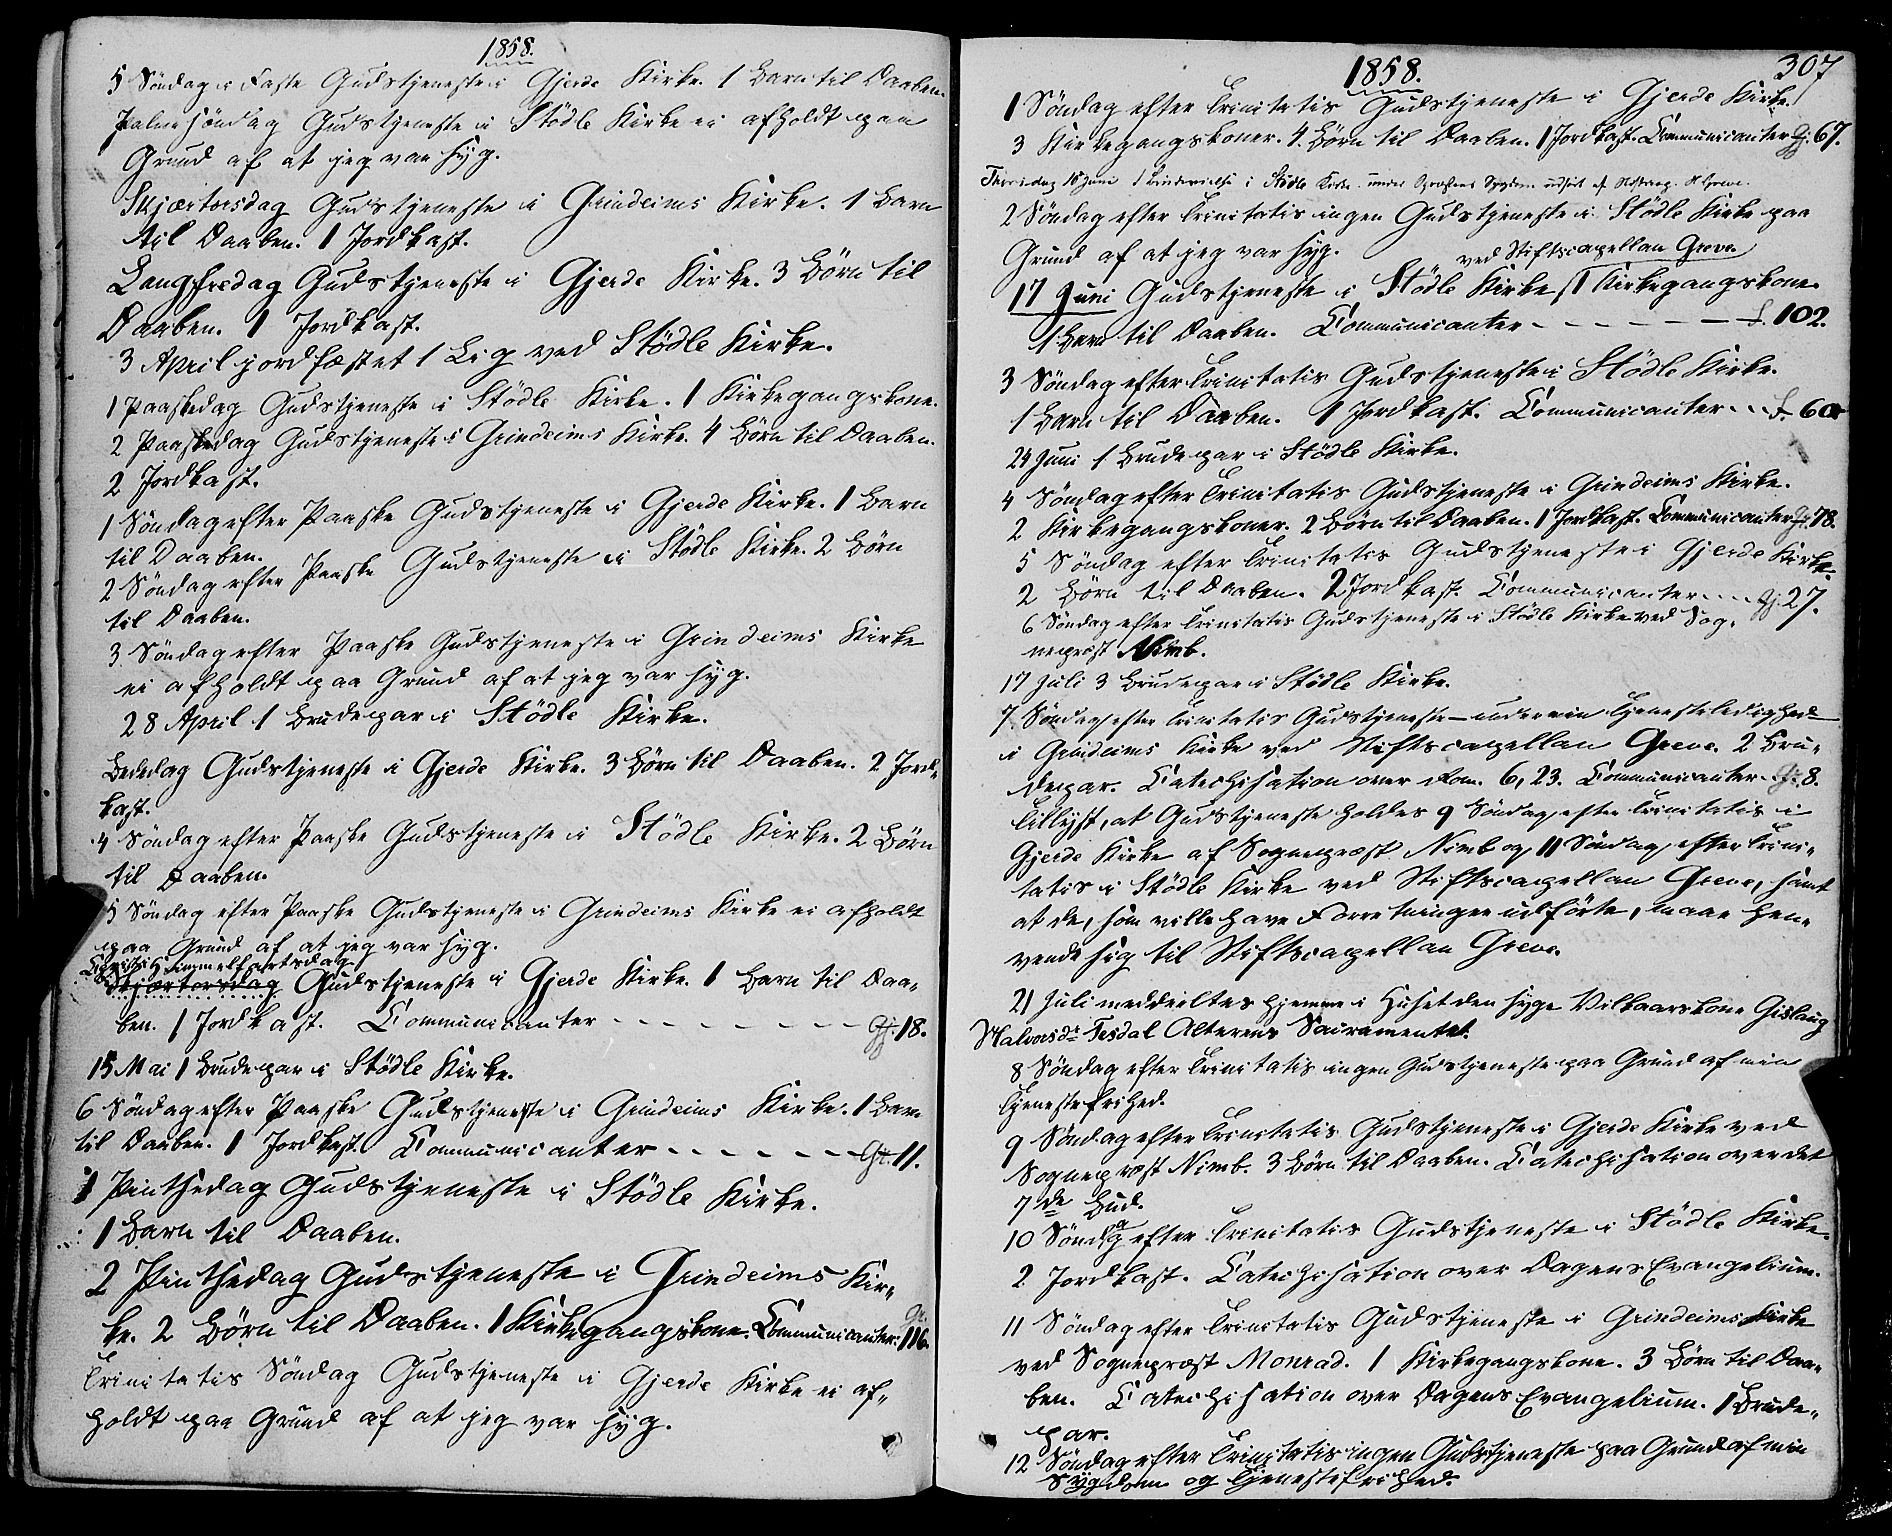 1858.
5 Söndag i Faste Gudstjeneste i Gjerde Kirke. 1 Barn til Daaben.
Palmesöndag Gudstjeneste i Stödle Kirke ei afholdt paa
Grund af at jeg var syg.
Skjærtorsdag Gudstjeneste i Grindeims Kirke. 1 Barn
til Daaben. 1 Jordkast.
Langfredag Gudstjeneste i Gjerde Kirke. 3 Börn til
Daaben. 1 Jordkast.
3 April jordfæstet 1 Lig ved Stödle Kirke.
1 Paaskedag Gudstjeneste i Stödle Kirke. 1 Kirkegangskone.
2 Paaskedag Gudstjeneste i Grindeims Kirke. 4 Börn til Daaben.
2 Jordkast.
1 Söndag efter Paaske Gudstjeneste i Gjerde Kirke. 1 Barn
til Daaben.
2 Söndag efter Paaske Gudstjeneste i Stödle Kirke. 2 Börn
til Daaben.
3 Söndag efter Paaske Gudstjeneste i Grindeims Kirke
ei afholdt paa Grund af at jeg var syg.
28 April 1 Brudepar i Stödle Kirke.
Bededag Gudstjeneste i Gjerde Kirke. 3 Börn til Daaben. 2 Jord-
kast.
4 Söndag efter Paaske Gudstjeneste i Stödle Kirke. 2 Börn
til Daaben.
5 Söndag efter Paaske Gudstjeneste i Grindeims Kirke ei afholdt
paa Grund af at jeg var syg.
Christi Himmelfartsdag
Skjærtorsdag Gudstjeneste i Gjerde Kirke. 1 Barn til Daa-
ben. 1 Jordkast. Communicanter - - - - - - - - Gj. 18.
15 Mai 1 Brudepar i Stödle Kirke.
6 Söndag efter Paaske Gudstjeneste i Grindeims Kirke. 1 Barn
til Daaben. 1 Jordkast. Communicanter - - - - - - - Gr. 11.
1 Pintsedag Gudstjeneste i Stödle Kirke.
1 Barn til Daaben.
2 Pintsedag Gudstjeneste i Grindeims Kir-
ke. 2 Börn til Daaben. 1 Kirkegangskone. Communicanter. Gr. 116.
Trinitatis Söndag Gudstjeneste i Gjerde Kirke ei af-
holdt paa Grund af at jeg var syg.
1858. 307
1 Söndag efter Trinitatis Gudstjeneste i Gjerde Kirke.
3 Kirkegangskoner. 4 Börn til Daaben. 1 Jordkast. Communicanter Gj. 67.
Thorsdag 10 Juni 1 i Stödle Kirke under Sygdom udfört af
2 Söndag efter Trinitatis ingen Gudstjeneste i Stödle Kirke paa
Grund af at jeg var syg.
ved Stiftscapellan Greve
17 Juni Gudstjeneste i Stödle Kirke 1 Kirkegangskone.
1 Barn til Daaben. Communicanter - - - - - - S. 102.
3 Söndag efter Trinitatis Gudstjeneste i Stödle Kirke.
1 Barn til Daaben. 1 Jordkast. Communicanter - - S. 60.
24 Juni 1 Brudepar i Stödle Kirke.
4 Söndag efter Trinitatis Gudstjeneste i Grindeims Kirke.
2 Kirkegangskoner. 2 Börn til Daaben. 1 Jordkast. Communicanter Gr. 78.
5 Söndag efter Trinitatis Gudstjeneste i Gjerde Kirke.
2 Börn til Daaben. 2 Jordkast. Communicanter - - - Gj. 27.
6 Söndag efter Trinitatis Gudstjeneste i Stödle Kirke ved Sog-
nepræst Nimb.
17 Juli 3 Brudepar i Stödle Kirke.
7 Söndag efter Trinitatis Gudstjeneste - under min Tjenesteledighed -
i Grindeims Kirke ved Stiftscapellan Greve. 2 Bru-
depar. Catechisation over Rom. 6, 23. Communicanter. Gr. 8.
Tillyst, at Gudstjeneste holdes 9 Söndag efter Trinitatis i
Gjerde Kirke af Sognepræst Nimb og 11 Söndag efter Trini-
tatis i Stödle Kirke ved Stiftscapellan Greve, samt
at de, som ville have Forretninger udförte, maae hen-
vende sig til Stiftscapellan Greve.
21 Juli meddeeltes hjemme i Huset den syge Vilkaarskone Gislaug
Halvorsdr. Tesdal Alterens Sacramentet.
8 Söndag efter Trinitatis ingen Gudstjeneste paa Grund af min
Tjenestefrihed.
9 Söndag efter Trinitatis Gudstjeneste i Gjerde Kirke ved
Sognepræst Nimb. 3 Börn til Daaben. Catechisation over det
7de Bud.
10 Söndag efter Trinitatis Gudstjeneste i Stödle Kirke.
2 Jordkast. Catechisation over Dagens Evangelium.
11 Söndag efter Trinitatis Gudstjeneste i Grindeims Kirke
ved Sognepræst Monrad. 1 Kirkegangskone. 3 Börn til Daa-
ben. Catechisation over Dagens Evangelium. 1 Brude-
par.
12 Söndag efter Trinitatis ingen Gudstjeneste paa Grund af min
Sygdom og Tjenestefrihed.